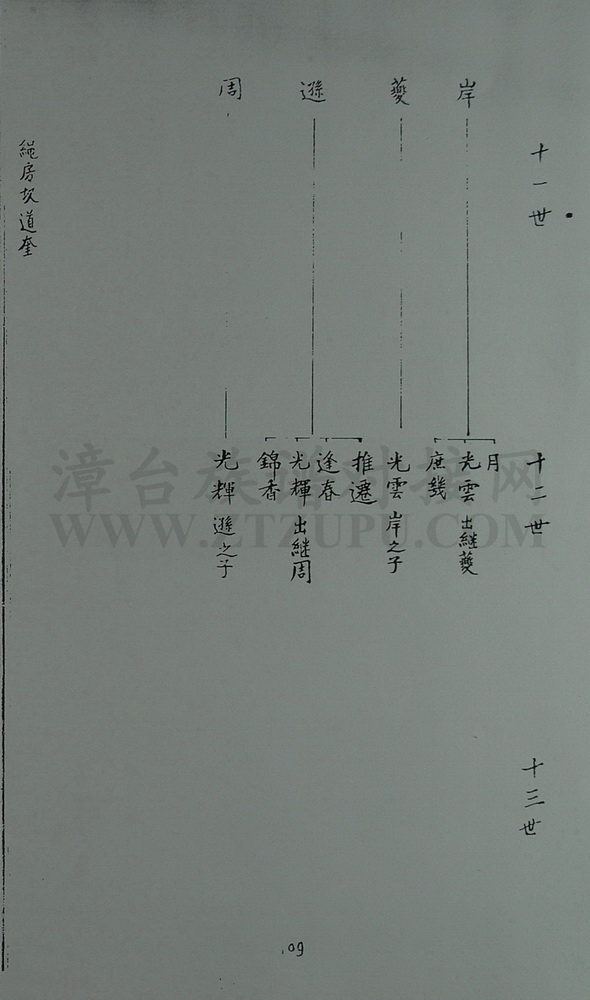 十一世
岸
夔
遜
周
十二世
月
光雲 出継夔
庶幾
光雲 岸之子
推遷
逢春
光輝 出継周
錦香
光輝 遜之子
十三世
繩房坎道奎
109
漳台族谱对接网
WWW.ZTZUPU.COM